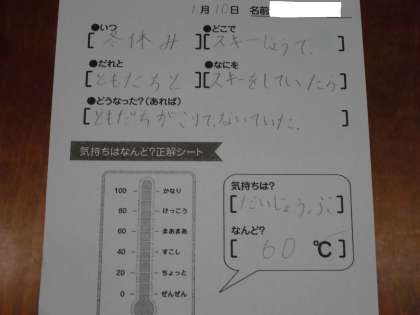 1月10日 名前
●いつ ●どこで
[冬休み] [スキーじょうで、]
●だれと ●なにを
[ともだちと] [スキーをしていたら]
●どうなった?(あれば)
[ともだちがころんで、ないていた。]
気持ちはなんど?正解シート
気持ちは?
[だいじょうぶ]
なんど?
[60 ℃]
100 かなり
80 けっこう
60 まあまあ
40 すこし
20 ちょっと
0 ぜんぜん